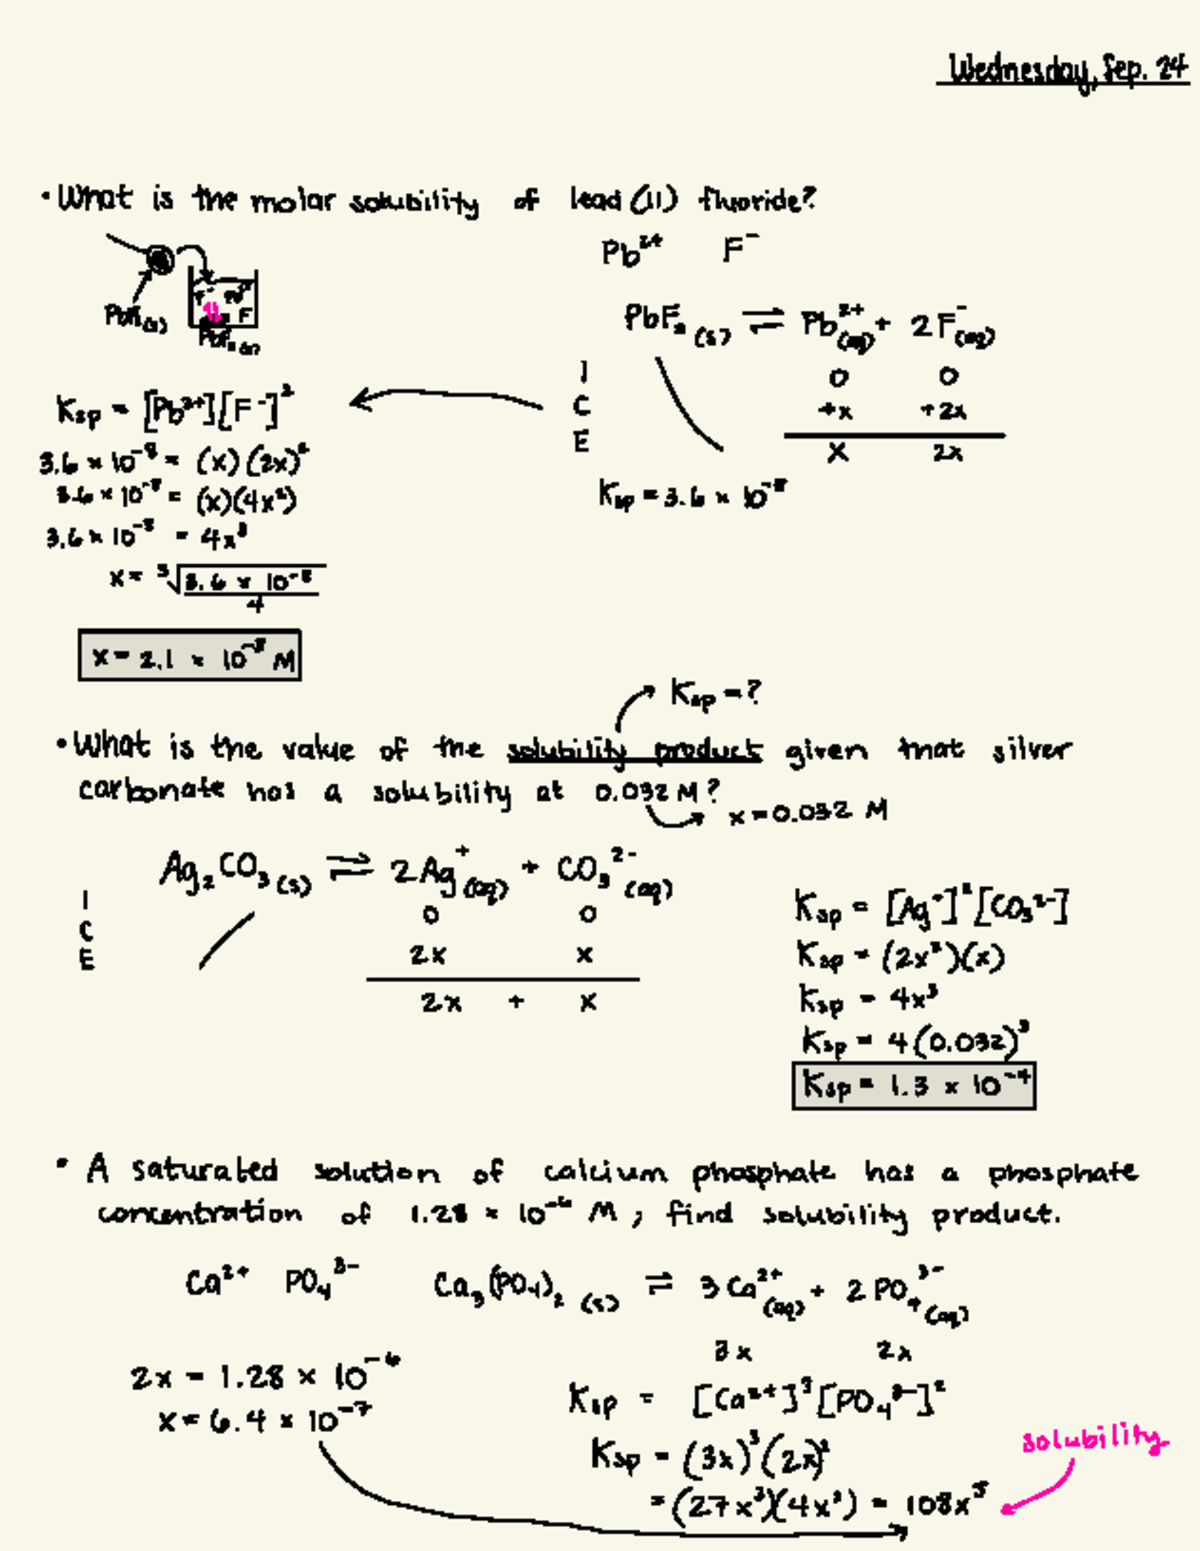 Wednesday, Sep. 24
• What is the molar solubility of lead (II) fluoride?
Pb²⁺ F⁻
PbF₂ (s) ⇌ Pb²⁺(aq) + 2F⁻(aq)
I 0 0
C +x +2x
E x 2x
Ksp = 3.6 × 10⁻⁸
Ksp = [Pb²⁺][F⁻]²
3.6 × 10⁻⁸ = (x)(2x)²
3.6 × 10⁻⁸ = (x)(4x²)
3.6 × 10⁻⁸ = 4x³
x = ³√3.6 × 10⁻⁸
4
x = 2.1 × 10⁻³ M
Ksp = ?
• What is the value of the solubility product given that silver
carbonate has a solubility at 0.032 M?
x = 0.032 M
Ag₂CO₃ (s) ⇌ 2Ag⁺(aq) + CO₃²⁻(aq)
I 0 0
C 2x x
E 2x + x
Ksp = [Ag⁺]²[CO₃²⁻]
Ksp = (2x²)(x)
Ksp = 4x³
Ksp = 4(0.032)³
Ksp = 1.3 × 10⁻⁴
• A saturated solution of calcium phosphate has a phosphate
concentration of 1.28 × 10⁻⁶ M, find solubility product.
Ca²⁺ PO₄³⁻ Ca₃(PO₄)₂ (s) ⇌ 3Ca²⁺(aq) + 2PO₄³⁻(aq)
3x 2x
2x = 1.28 × 10⁻⁶
x = 6.4 × 10⁻⁷
Ksp = [Ca²⁺]³[PO₄³⁻]²
Ksp = (3x)³(2x)²
= (27x³)(4x²) = 108x⁵
solubility